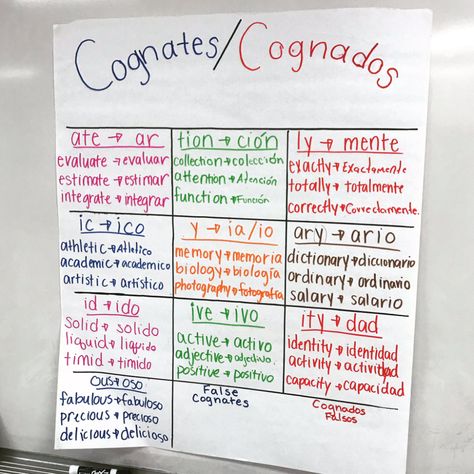 Cognates/Cognados
ate → ar
evaluate → evaluar
estimate → estimar
integrate → integrar
tion → ción
collection → colección
attention → Atención
function → Función
ly → mente
exactly → Exactamente
totally → totalmente
correctly → Correctamente.
ic → ico
athletic → Atlético
academic → academico
artistic → artístico
y → ia/io
memory → memoria
biology → biología
photography → fotografía
ary → ario
dictionary → diccionario
ordinary → ordinario
salary → salario
id → ido
solid → solido
liquid → líquido
timid → timido
ive → ivo
active → activo
adjective → adjectivo.
positive → positivo
ity → dad
identity → identidad
activity → actividad
capacity → capacidad
ous → oso
fabulous → fabuloso
precious → precioso
delicious → delicioso
False
Cognates
Cognados
Falsos